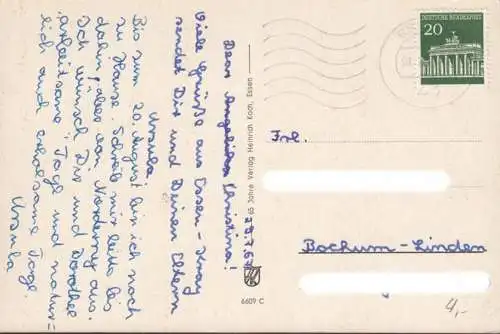 28.7.67
Dear Christina!
Viele Grüße aus Essen-Kray
sendet Dir und Deinen Eltern
Ursula
Bis zum 20. August bin ich noch
zu Hause. Schreib mir bitte bis
dahin, aber von Norderney aus.
Ich wünsch Dir und Dorothee
„arbeitsame" Tage und natür=
lich auch erholsame Tage.
Ursula
65 Jahre Verlag Heinrich Koch, Essen
6609 C
DEUTSCHE BUNDESPOST
20
Frl.
Bochum-Linden
4,-